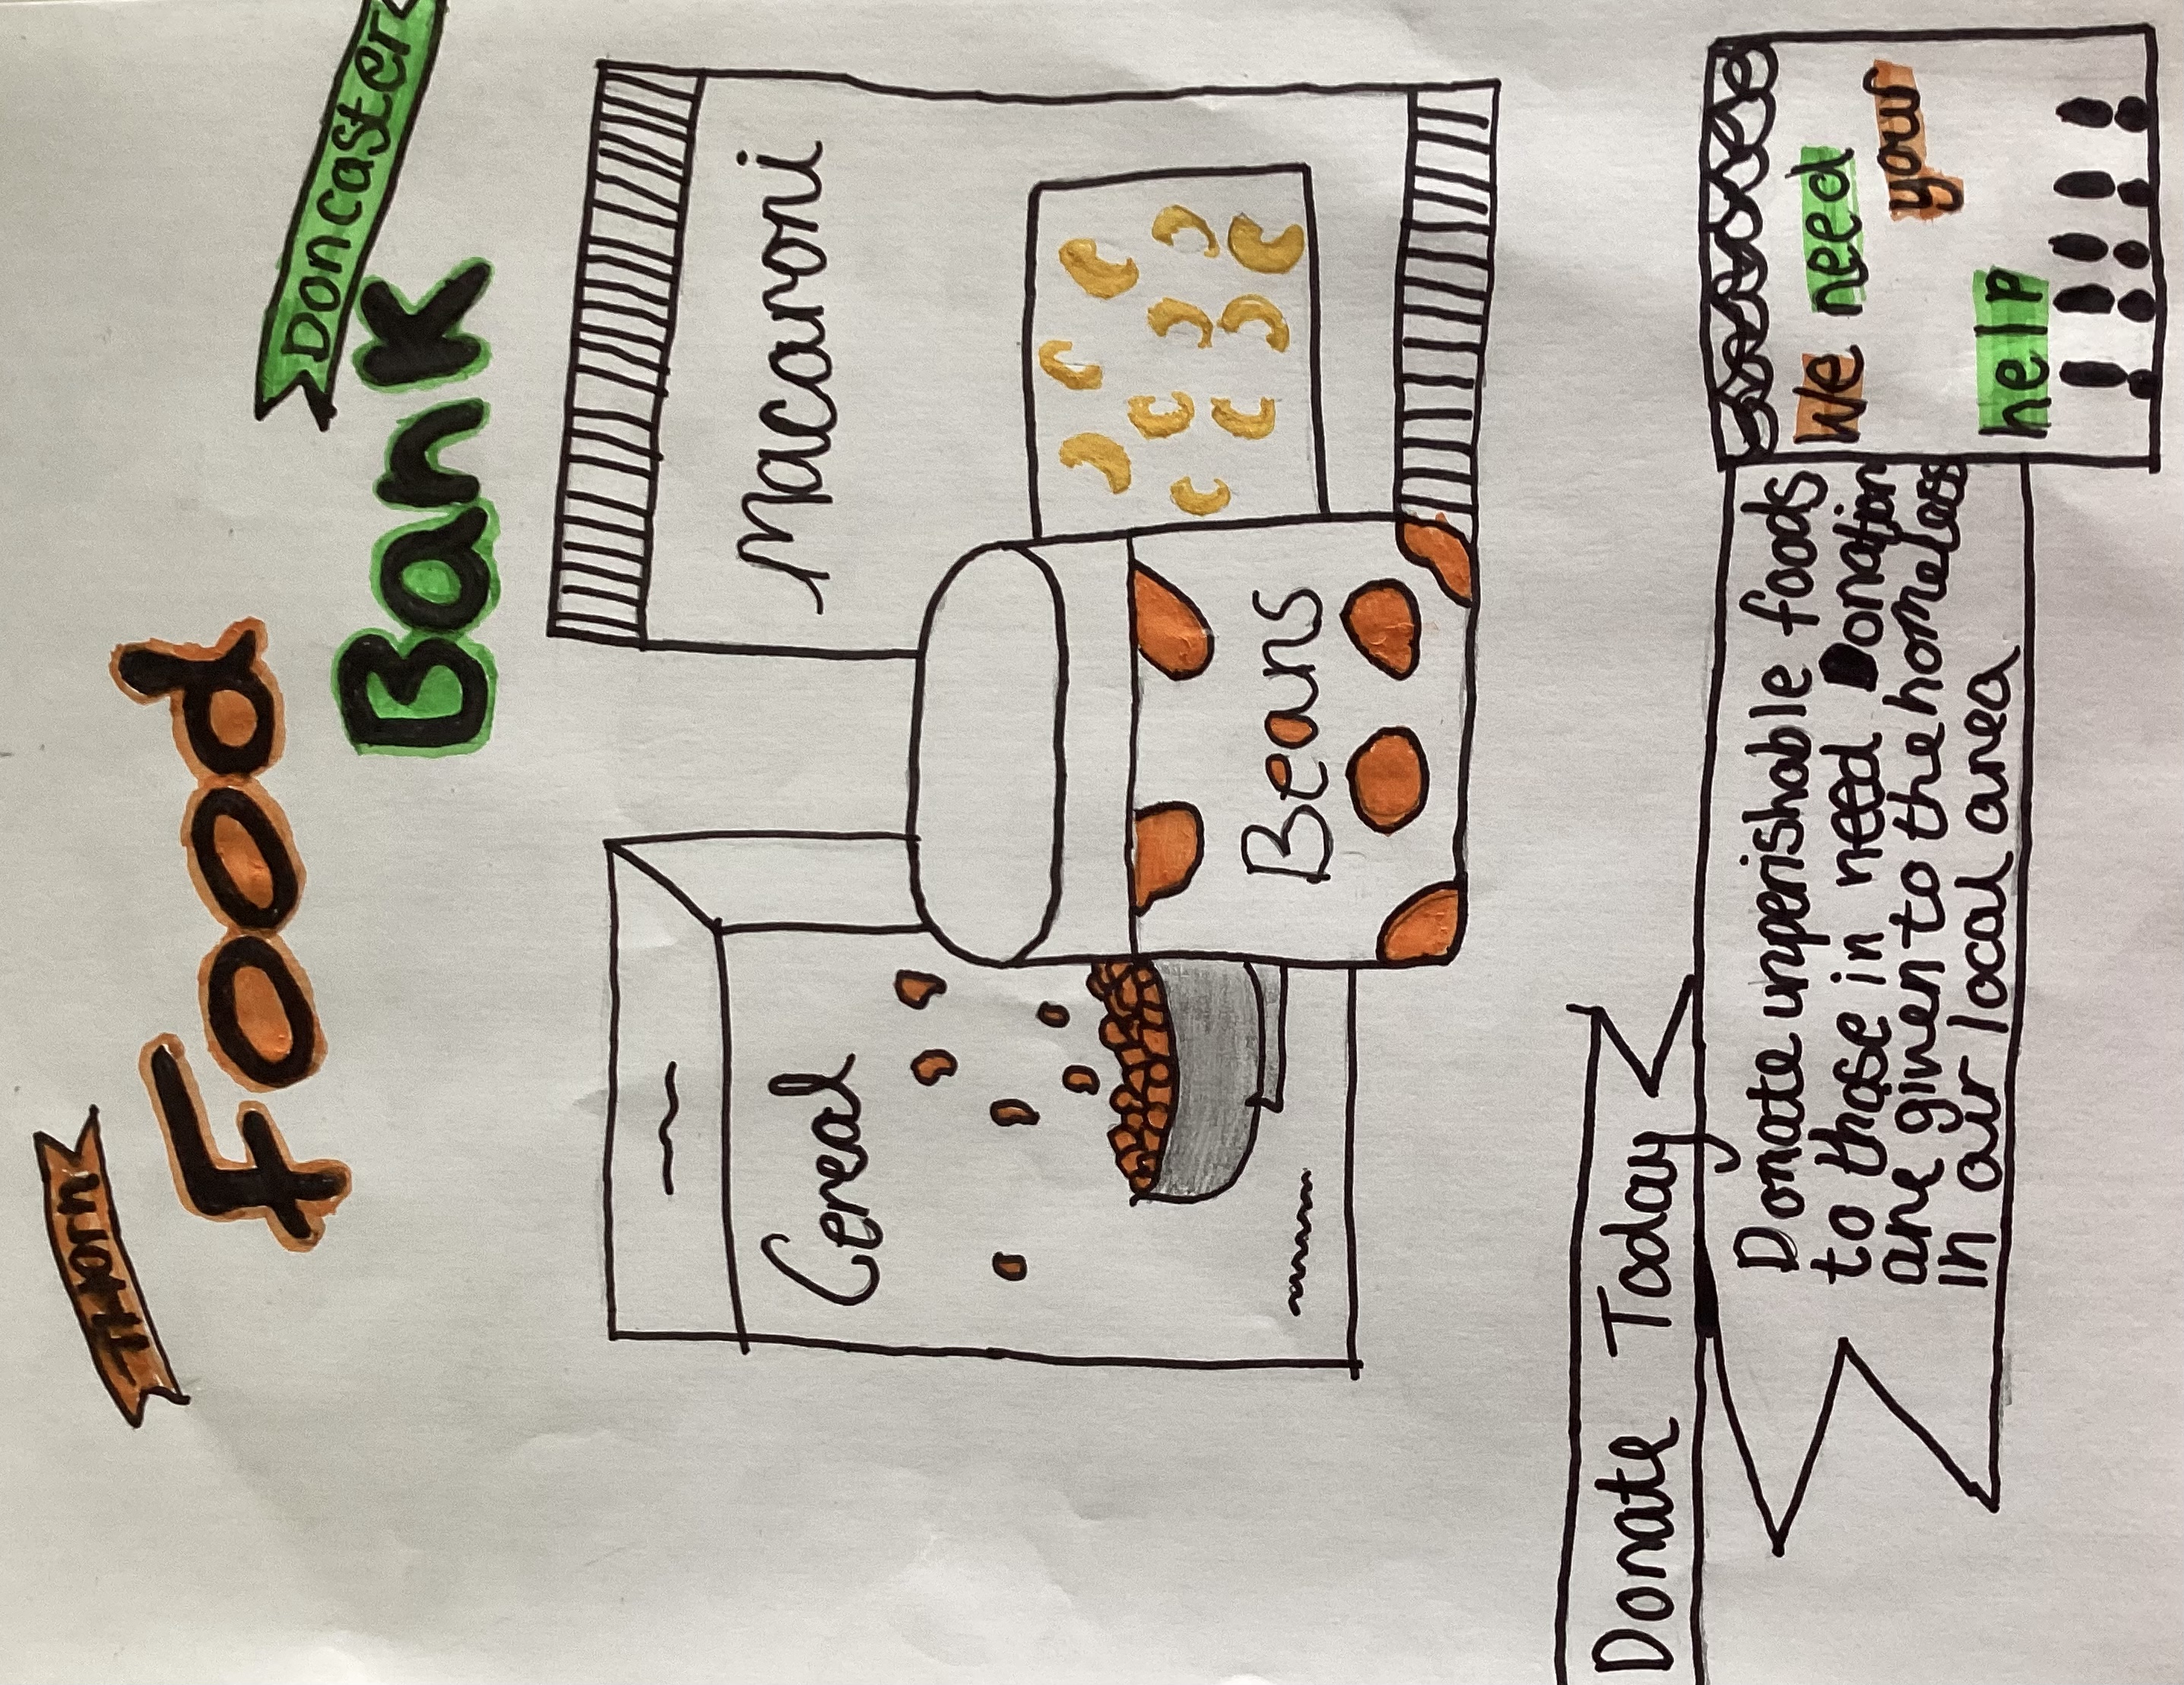 Thorn
Doncaster
Food
Bank
Macaroni
Cereal
Beans
Donate Today
Donate unperishable foods
to those in need Donation
are given to the homeless
in our local area
We need
your
help
!!!!!